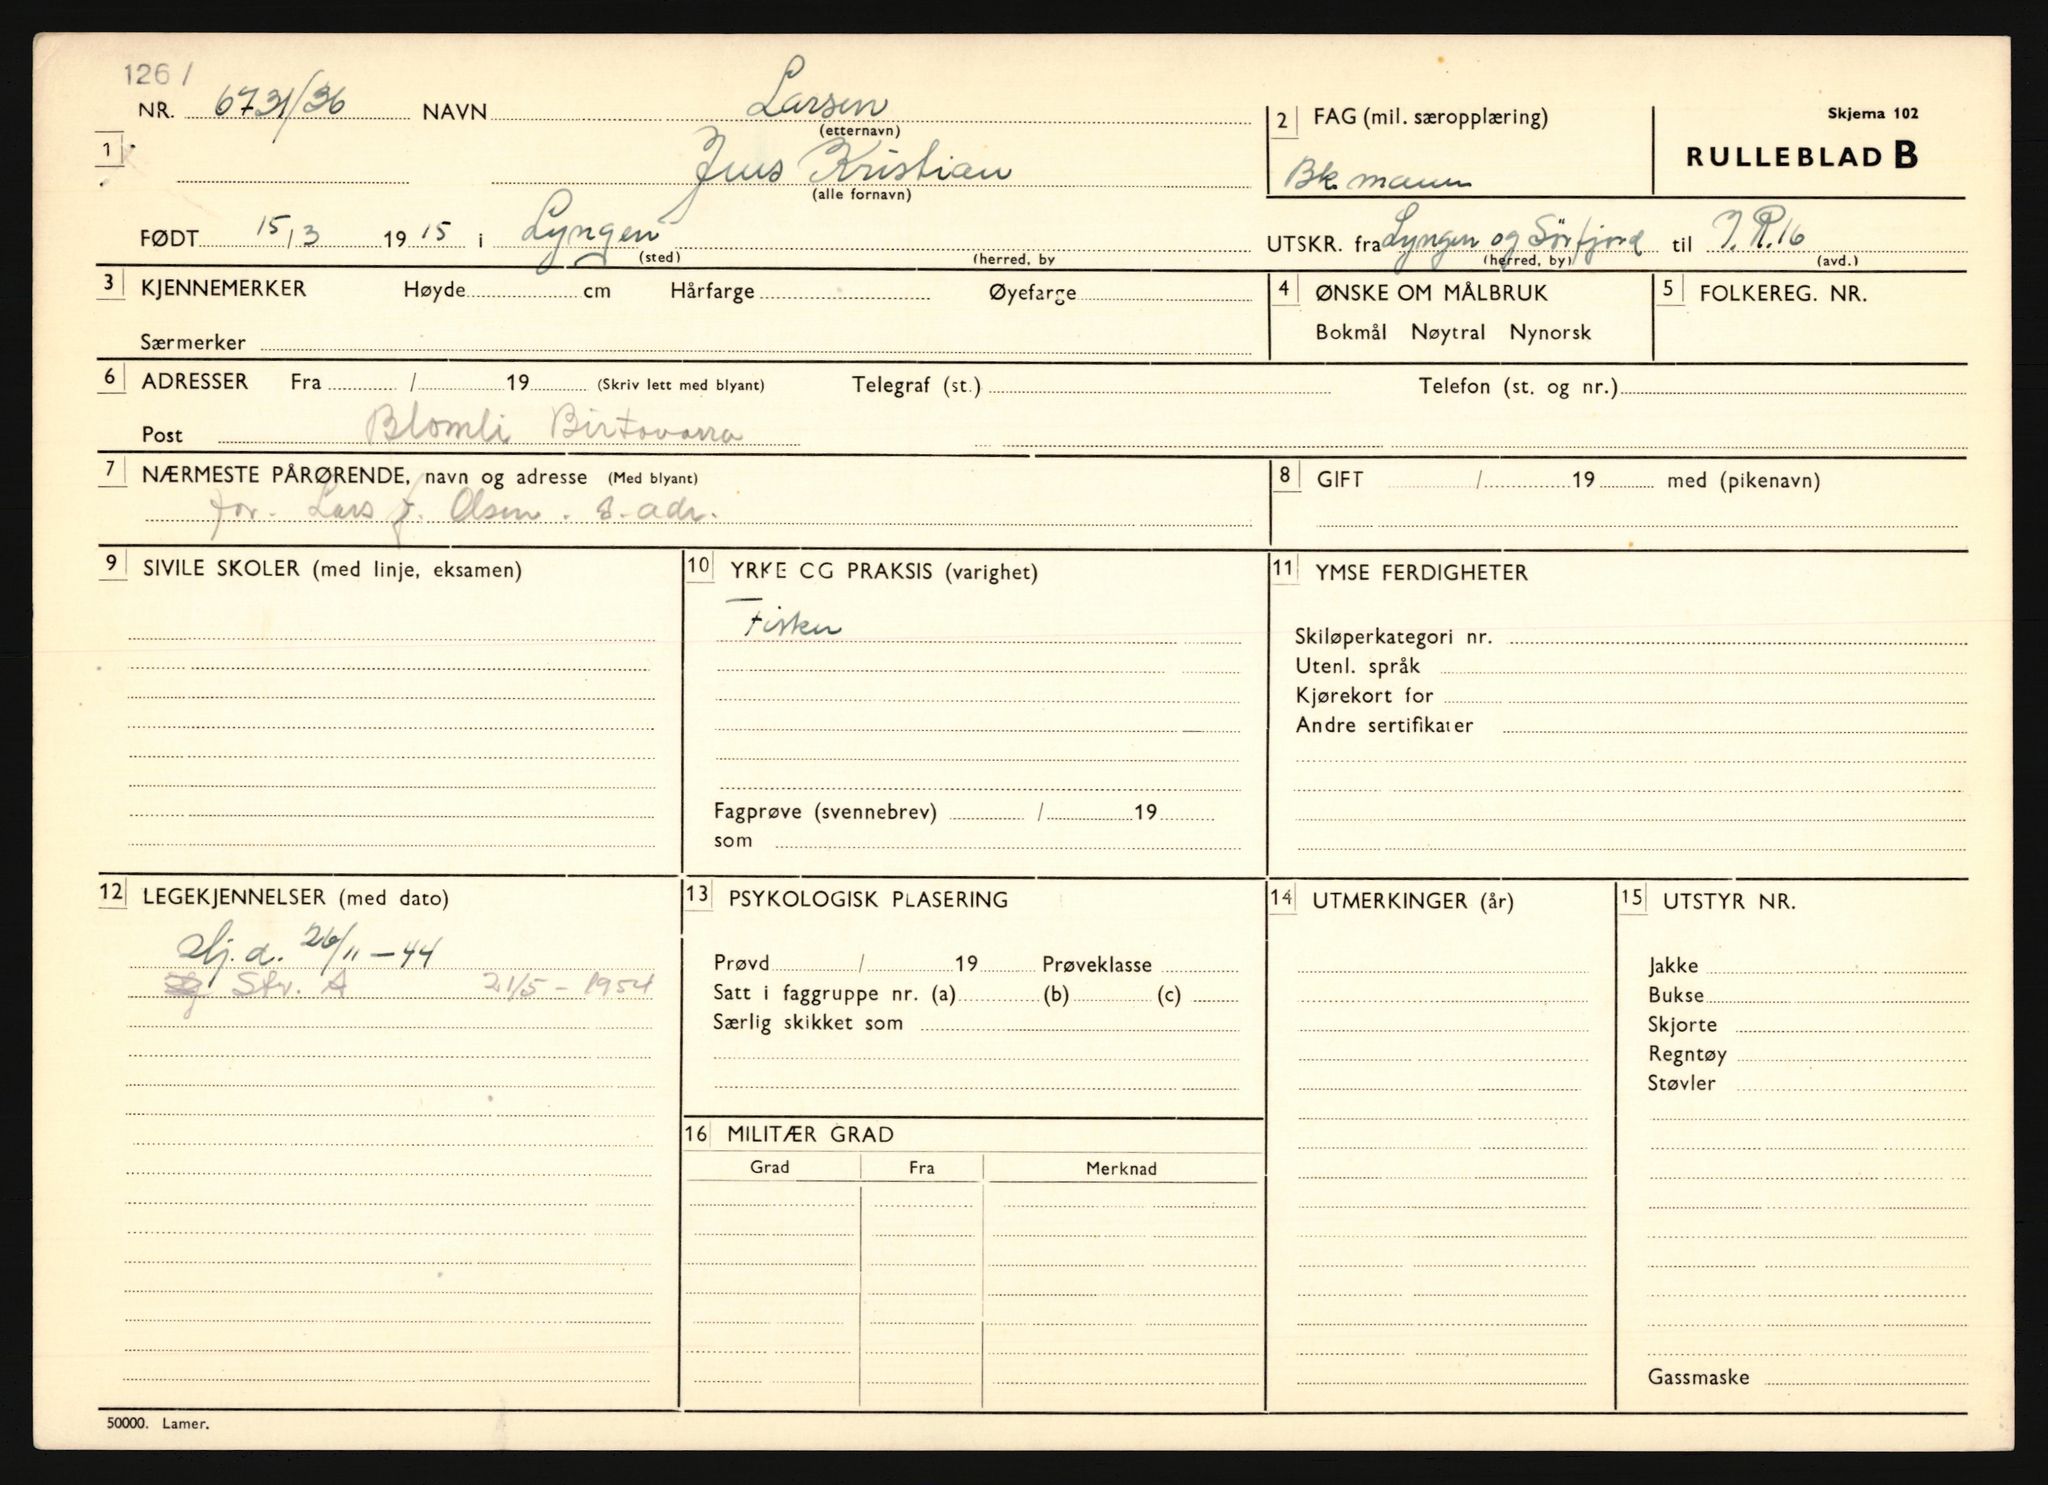 126 /
NR. 6731/36 NAVN Larsen
(etternavn)
1
Jens Kristian
(alle fornavn)
FØDT 15/3 1915 i Lyngen
(sted) (herred, by
2 FAG (mil. særopplæring)
Bk. mann
Skjema 102
RULLEBLAD B
UTSKR. fra Lyngen og Sörfjord til I.R.16
(herred, by) (avd.)
3 KJENNEMERKER Høyde cm Hårfarge Øyefarge
Særmerker
4 ØNSKE OM MÅLBRUK
Bokmål Nøytral Nynorsk
5 FOLKEREG. NR.
6 ADRESSER Fra / 19 (Skriv lett med blyant) Telegraf (st.) Telefon (st. og nr.)
Post Blomli Birtavarra
7 NÆRMESTE PÅRØRENDE, navn og adresse (Med blyant)
for. Lars J. Olsen. s. adr.
8 GIFT / 19 med (pikenavn)
9 SIVILE SKOLER (med linje, eksamen)
10 YRKE CG PRAKSIS (varighet)
Fisker
Fagprøve (svennebrev) / 19
som
11 YMSE FERDIGHETER
Skiløperkategori nr.
Utenl. språk
Kjørekort for
Andre sertifikater
12 LEGEKJENNELSER (med dato)
stj. d. 26/11-44
Str. A 21/5 - 1954
13 PSYKOLOGISK PLASERING
Prøvd / 19 Prøveklasse
Satt i faggruppe nr. (a) (b) (c)
Særlig skikket som
14 UTMERKINGER (år)
15 UTSTYR NR.
Jakke
Bukse
Skjorte
Regntøy
Støvler
Gassmaske
16 MILITÆR GRAD
Grad Fra Merknad
50000. Lamer.